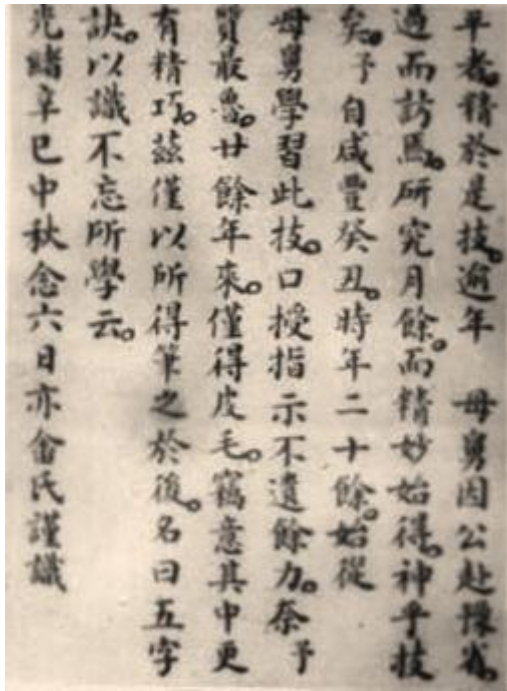 平者。精於是技。逾年 母舅因公赴豫省。
過而訪焉。研究月餘。而精妙始得。神乎技
矣。予自咸豐癸丑。時年二十餘。始從
母舅學習此技。口授指示不遺餘力。奈予
質最魯。廿餘年來。僅得皮毛。竊意其中更
有精巧。茲僅以所得筆之於後。名曰五字
訣。以識不忘所學云。
光緒辛巳中秋念六日亦畬氏謹識